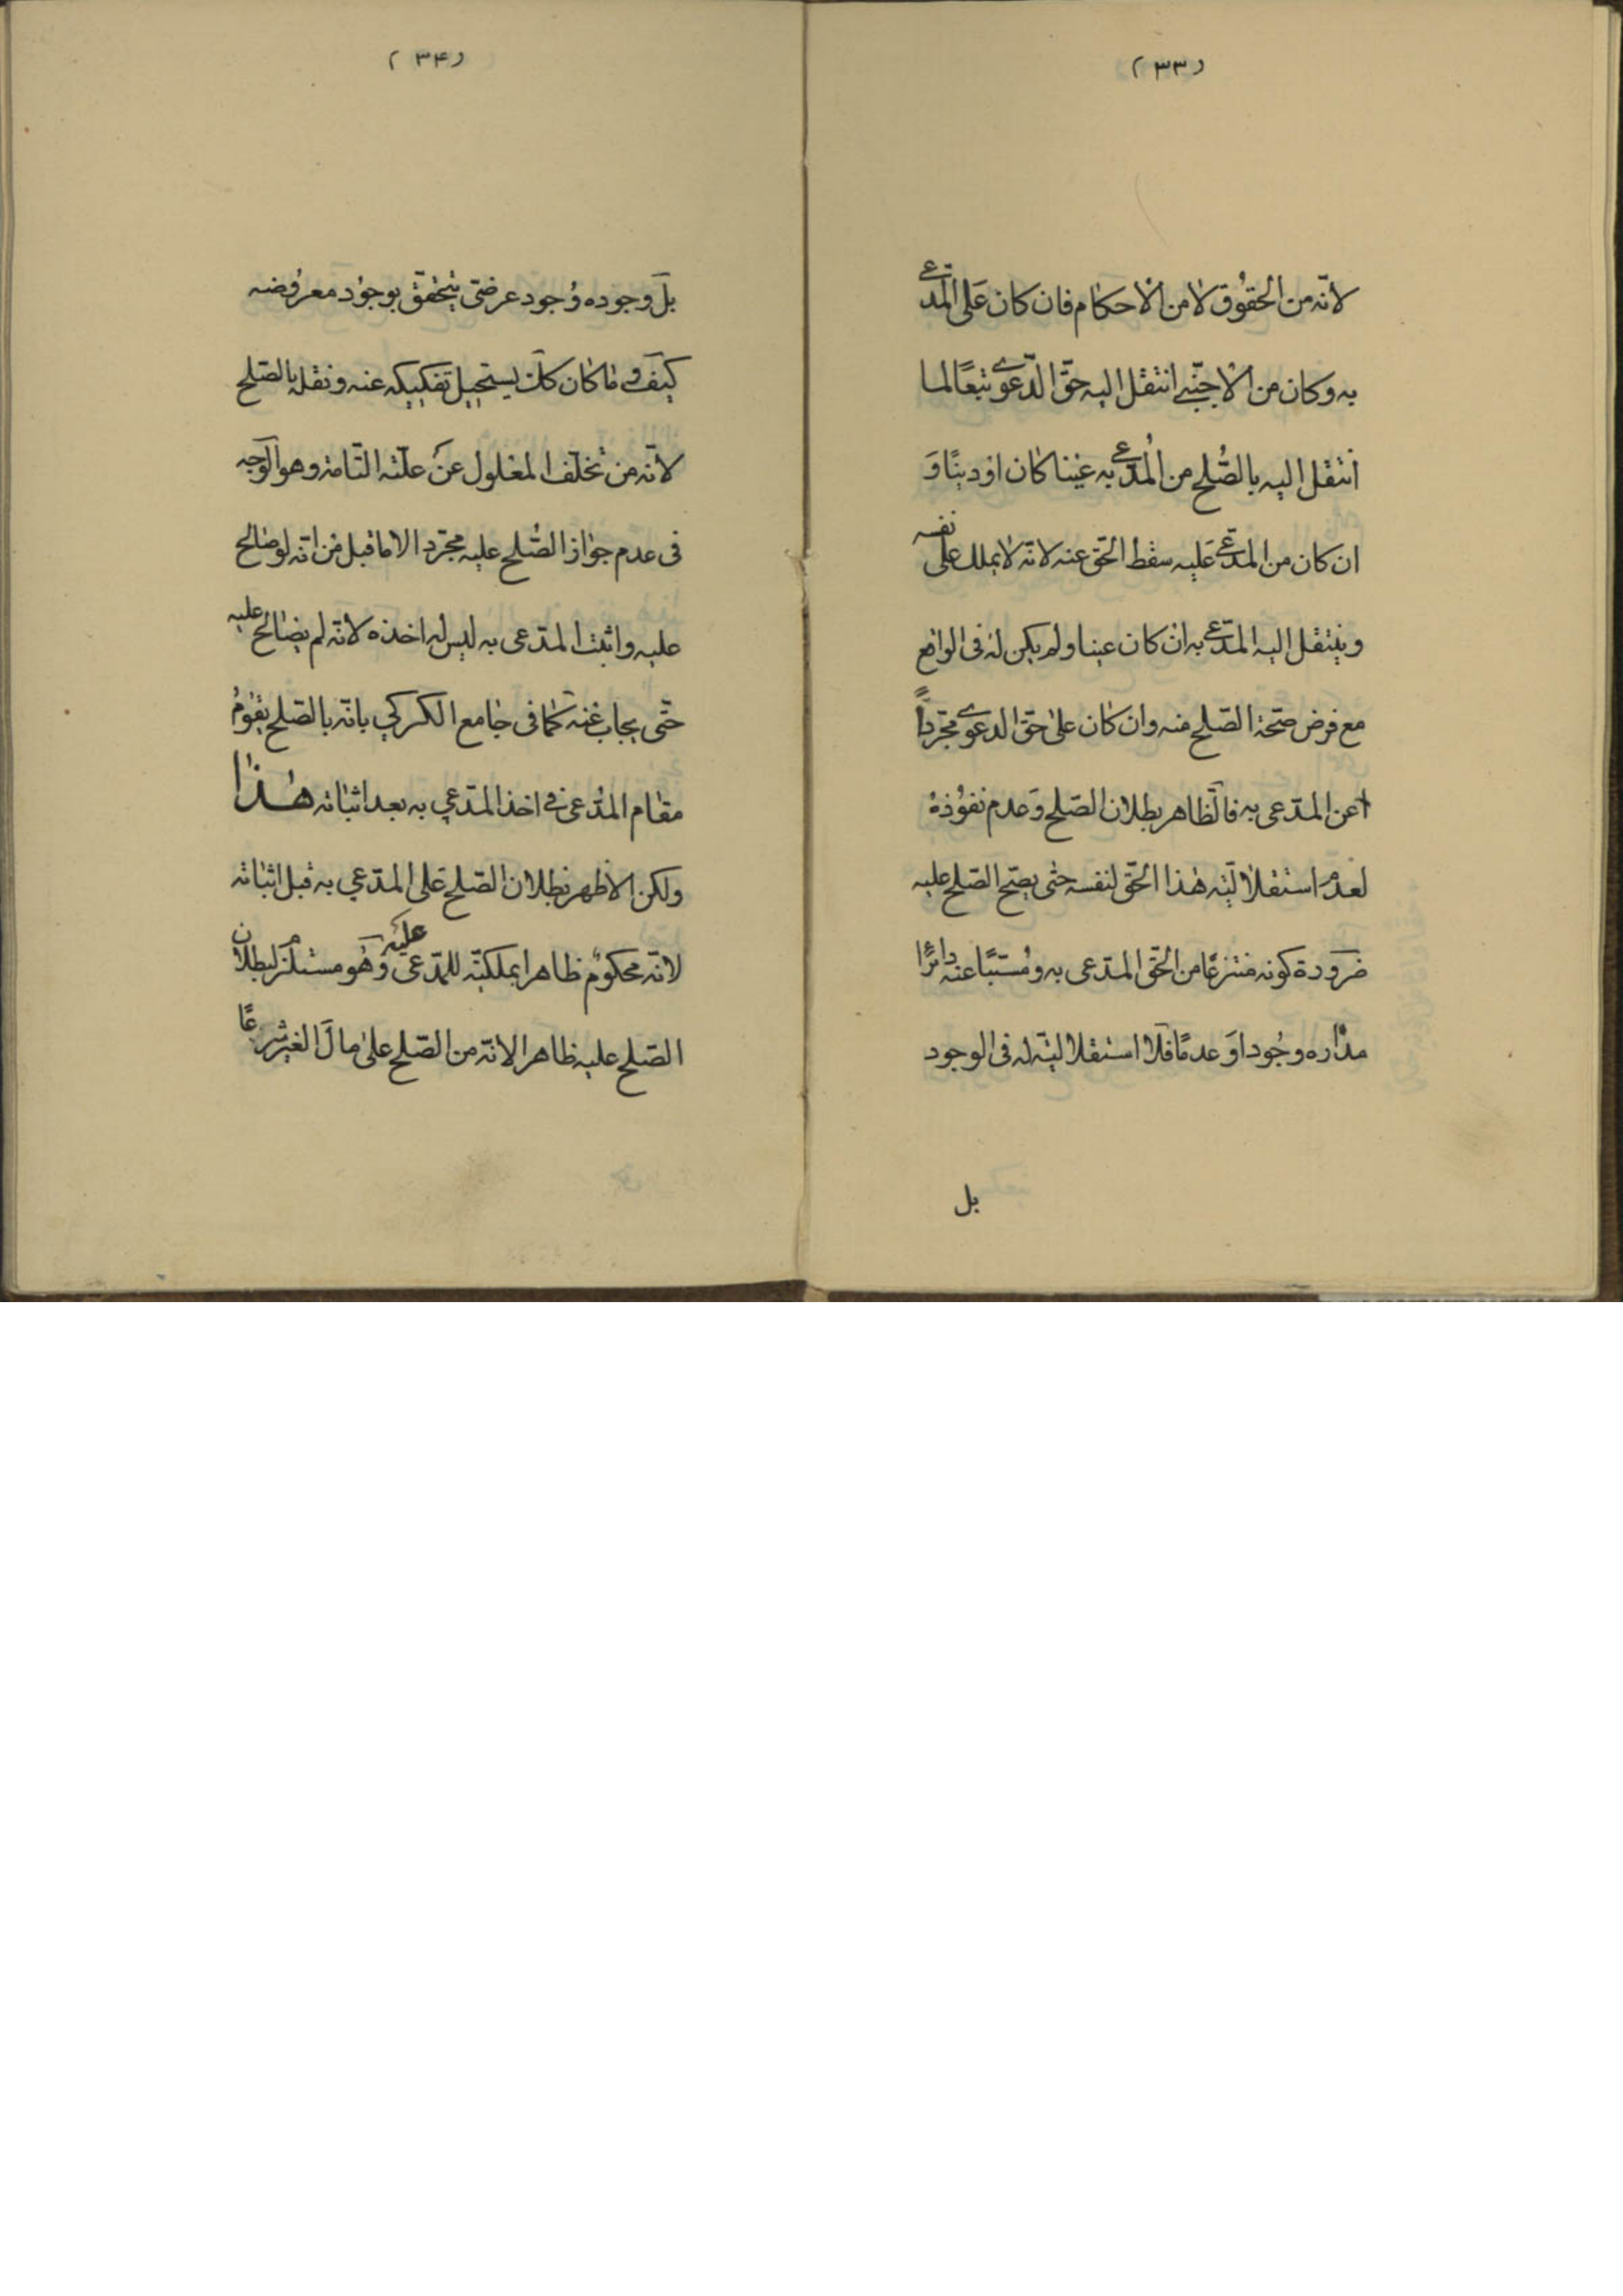 (٣٣)
لانّه من الحقوق لا من الاحكام فان كان على المدّعى
به و كان من الاجنبى انتقل اليه حقّ الدّعوى تبعًا لما
انتقل اليه بالصّلح من المدّعى به عينا كان او دينًا وَ
ان كان من المدّعى عليه سقط الحّق عنه لانّه لا يملك على نفسه
و ينتقل اليه المدّعى به ان كان عينا و لم يكن له فى الواقع
مع فرض صحّة الصّلح منه و ان كان على حقّ الدعوى مجرّداً
عن المدّعى به فالظّاهر بطلان الصّلح و عدم نفوذهُ
لعدم استقلاليّته هذا الحّق لنفسه حتى يصحّ الصّلح عليه
ضرورة كونه منتزعًا من الحّق المدّعى به و مُسبّبًا عنه دائرًا
مداره وجُودا وَ عدمًا فلا استقلاليّة له فى الوجود
بل
(٣۴)
بل وجوده وُجود عرضىّ يتحقّق بوجوُد معروُضه
كيف و ما كان كك يستحيل تفكيكه عنه و نقله بالصّلح
لانّه من تخلّف المعلول عن علّته التّامة و هو الوجه
فى عدم جواز الصُّلح عليه مجرّدا لا ما قيل من انّه لو صالح
عليه و اثبت المدّعى به ليس له اخذه لانّه لم يصالح عليه
حتّى يجاب عنه كما فى جامع الكركي بانّه بالصّلح يقوُمُ
مقام المُدّعى فى اخذ المدّعي به بعد اثباته هذا
ولكن الاظهر بطلان الصّلح على المدّعي به قبل اثباته
لانّه محكوم ظاهرا بملكيّته للمدّعى عليه وَ هُو مستلزم لبطلان
الصّلح عليه ظاهرا لانّه من الصّلح على مال الغير شرعًا